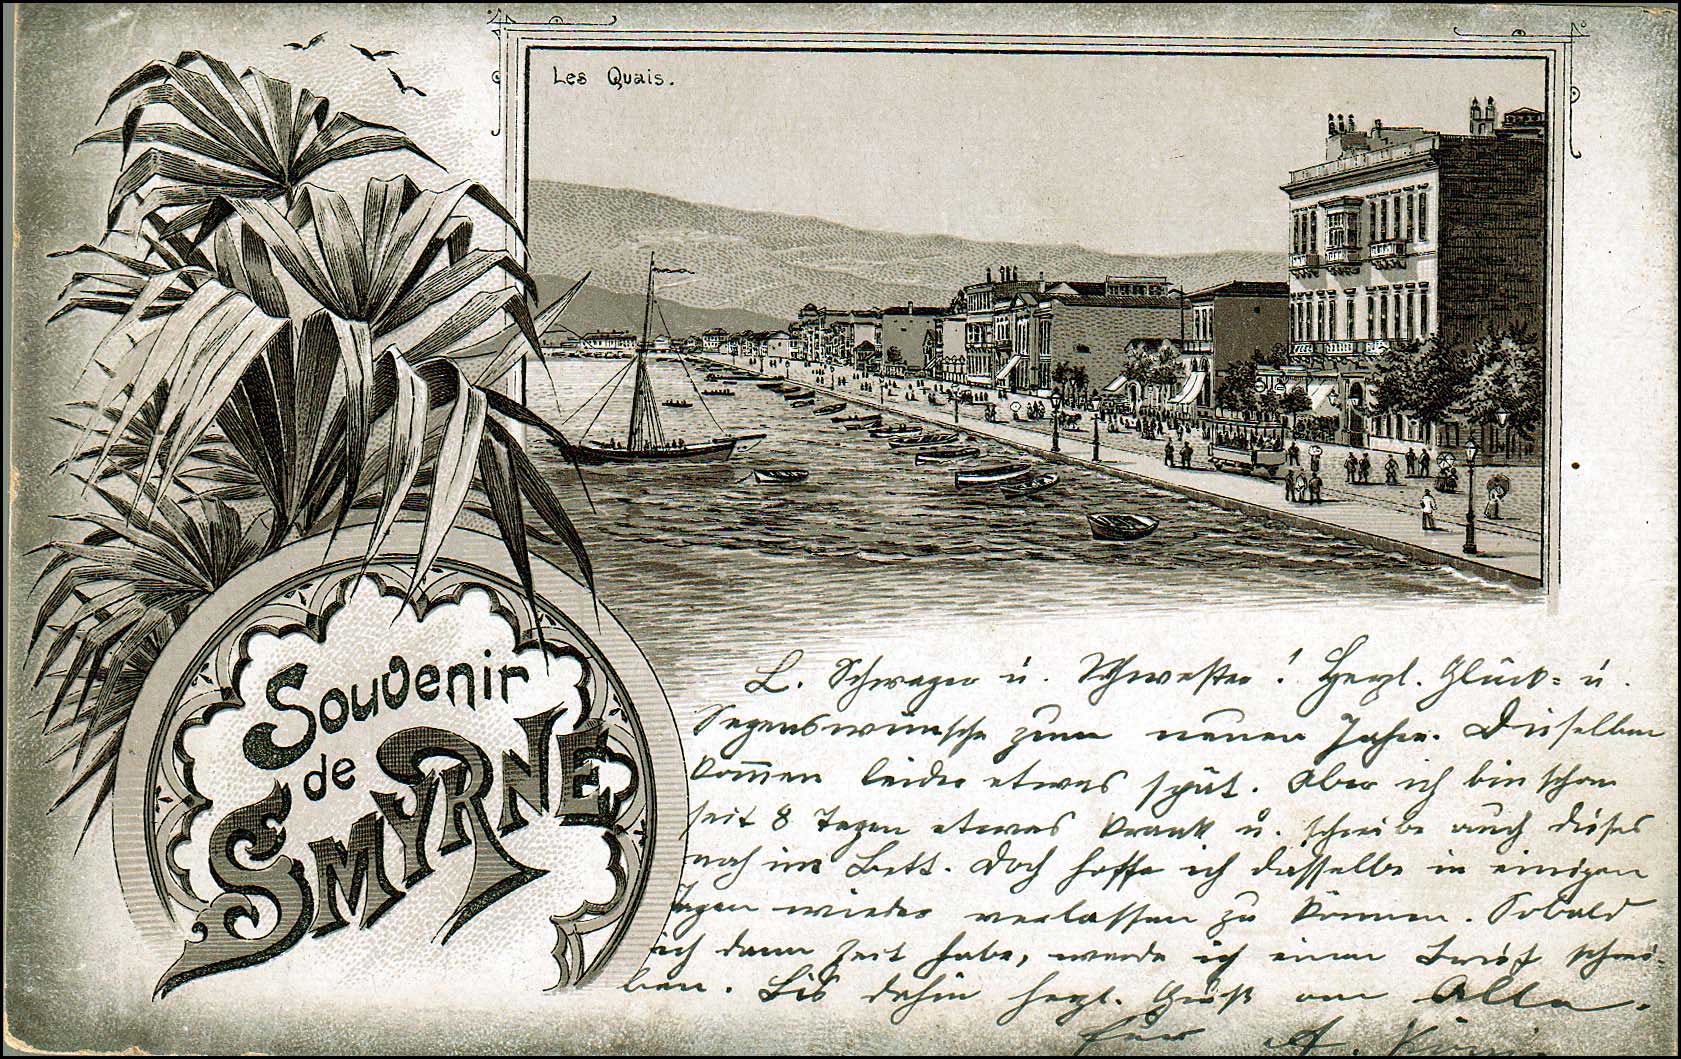 Les Quais.
Souvenir
de
SMYRNE
L. Schwager u. Schwester! Herzl. Glück- u.
Segenswünsche zum neuen Jahre. Dieselben
kommen leider etwas spät. Aber ich bin schon
seit 8 Tagen etwas krank u. schreibe auch dieses
noch im Bett. Doch hoffe ich dasselbe in einigen
Tagen wieder verlassen zu können. Sobald
ich dann Zeit habe, werde ich einen Brief schrei-
ben. Bis dahin herzl. Gruß an Alle.
A.